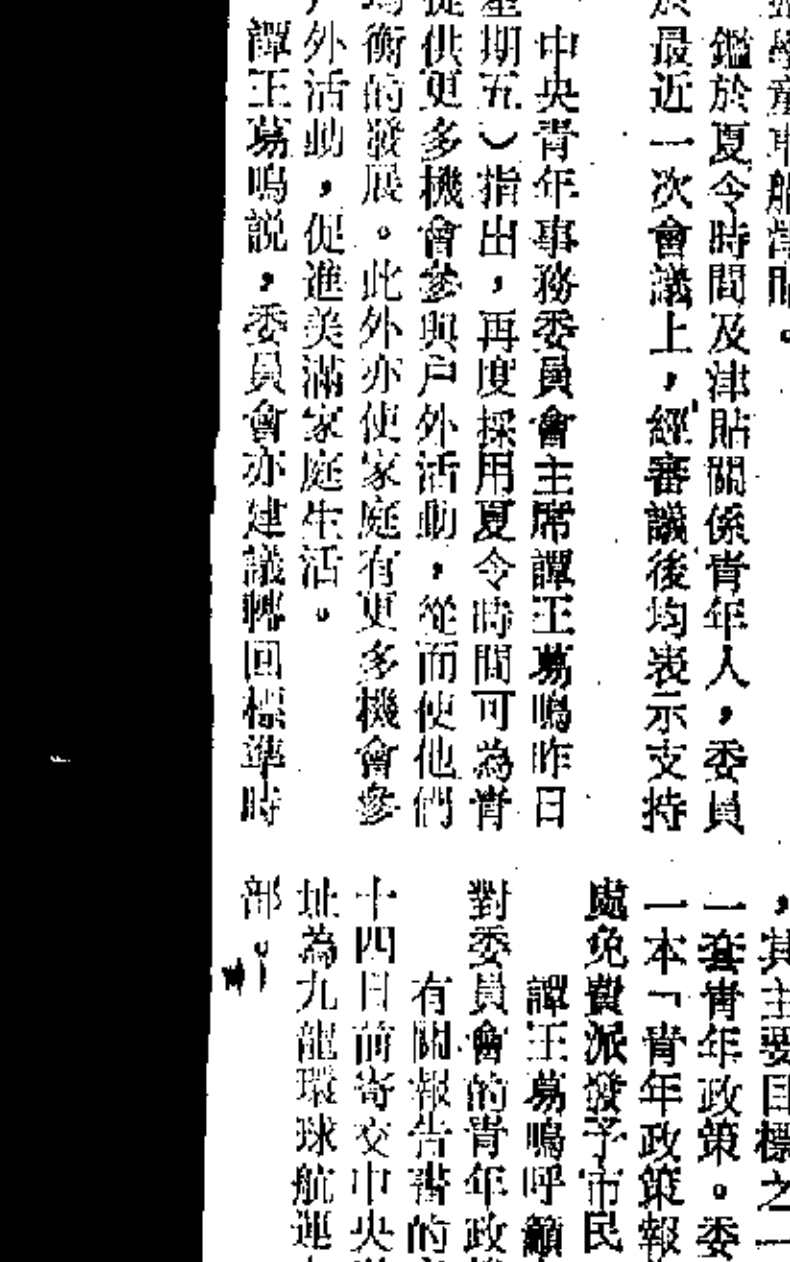 學童車船津貼。
鑑於夏令時間及津貼關係青年人，委員
於最近一次會議上，經審議後均表示支持
中央青年事務委員會主席譚王䓪鳴昨日
星期五）指出，再度採用夏令時間可為青
提供更多機會參與户外活動，從而使他們
均衡的發展。此外亦使家庭有更多機會參
户外活動，促進美滿家庭生活。
譚王䓪鳴説，委員會亦建議轉回標準時
，其主要目標之一
一套青年政策。委
一本「青年政策報
處免費派發予市民
譚王䓪鳴呼籲
對委員會的青年政
有關報告書的
十四日前寄交中央
址為九龍環球航運
部。